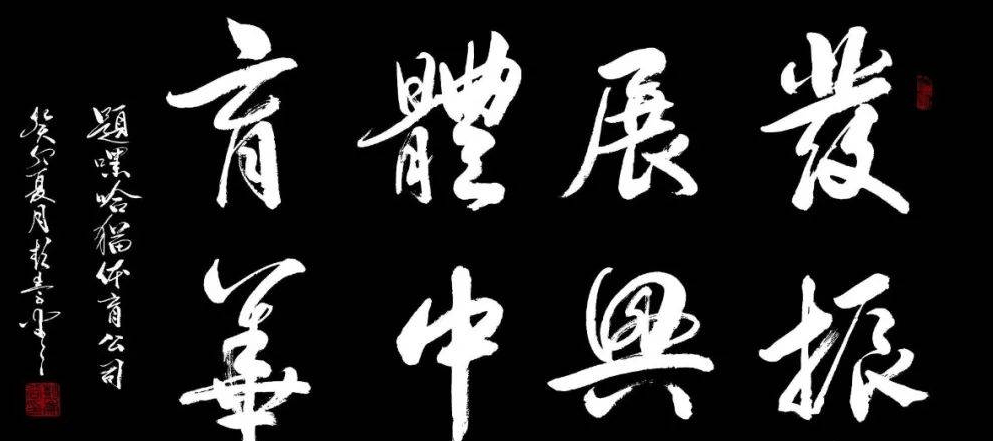 發展體育
振興中華
題嘿哈猫体育公司
癸卯夏月